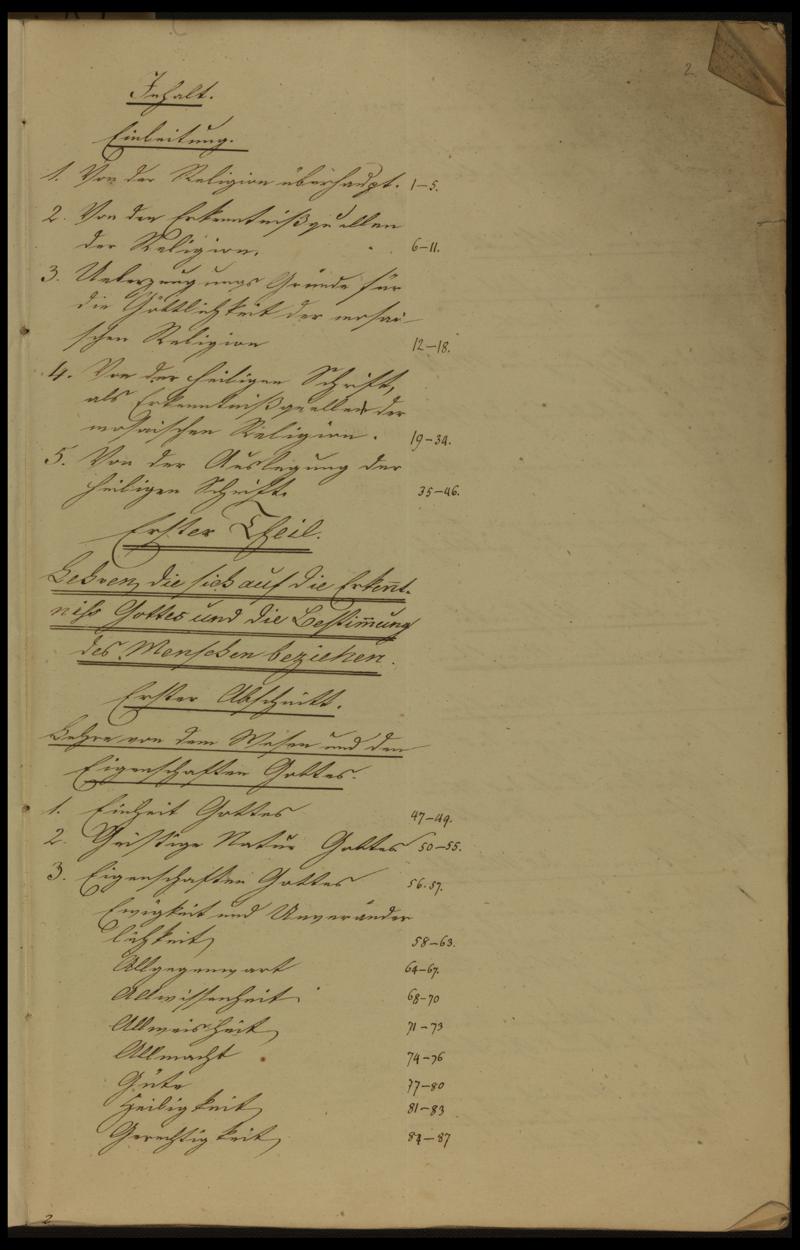 2
Inhalt.
Einleitung.
1. Von der Religion überhaupt. 1–5.
2. Von den Erkenntnißquellen
der Religion. 6–11.
3. Ueberzeugungs Gründe für
die Göttlichkeit der mosai-
schen Religion 12–18.
4. Von der heiligen Schrift,
als Erkenntnißquelle der
mosaischen Religion. 19–34.
5. Von der Auslegung der
heiligen Schrift. 35–46.
Erster Theil.
Lehren, die sich auf die Erkennt-
niß Gottes und die Bestim̄ung
des Menschen beziehen.
Erster Abschnitt.
Lehre von dem Wesen und den
Eigenschaften Gottes.
1. Einheit Gottes 47–49.
2. Geistige Natur Gottes 50–55.
3. Eigenschaften Gottes 56.57.
Ewigkeit und Unveränder
lichkeit 58–63.
Allgegenwart 64–67.
Allwissenheit 68–70
Allweisheit 71–73
Allmacht 74–76
Güte 77–80
Heiligkeit 81–83
Gerechtigkeit 84–87
2